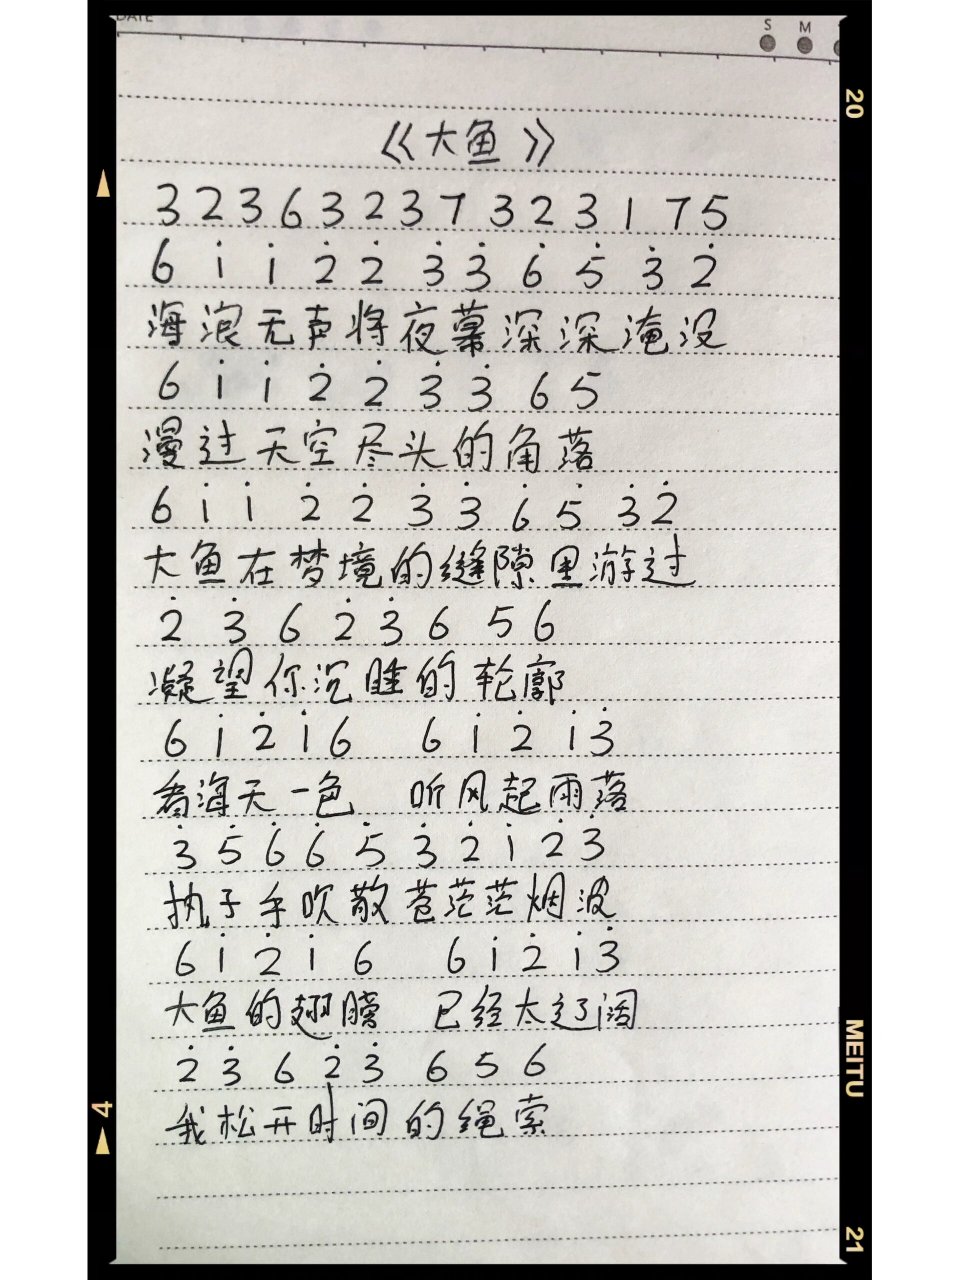 DATE
S M
《大鱼》
3 2 3 6 3 2 3 7 3 2 3 1 7 5
6 i i 2̇ 2̇ 3̇ 3̇ 6̇ 5̇ 3̇ 2̇
海浪无声将夜幕深深淹没
6 i i 2̇ 2̇ 3̇ 3̇ 6 5
漫过天空尽头的角落
6 i i 2̇ 2̇ 3̇ 3̇ 6̇ 5̇ 3̇ 2̇
大鱼在梦境的缝隙里游过
2̇ 3̇ 6 2̇ 3̇ 6 5 6
凝望你沉睡的轮廓
6 i 2̇ i 6 6 i 2̇ i 3̇
看海天一色 听风起雨落
3̇ 5̇ 6̇ 6̇ 5̇ 3̇ 2̇ i 2̇ 3̇
执子手吹散苍茫茫烟波
6 i 2̇ i 6 6 i 2̇ i 3̇
大鱼的翅膀 已经太辽阔
2̇ 3̇ 6 2̇ 3̇ 6 5 6
我松开时间的绳索
20
MEITU
21
4